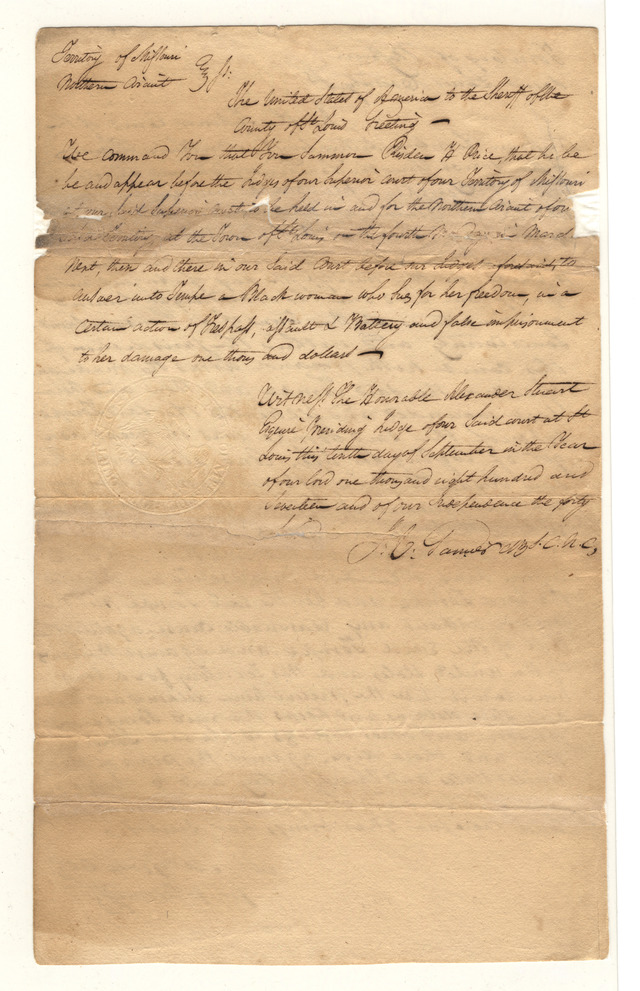 Territory of Missouri
Northern Circuit
The United States of America to the Sheriff of the
County of St Louis Greeting —
We command You that You Summon Risdon H Price, that he be
be and appear before the Judges of our Superior court of our Territory of Missouri
at our said Superior court to be held in and for the Northern Circuit of our
said Territory at the Town of St Louis on the fourth Monday in March
Next, then and there in our Said Court before our Judges aforesaid, to
answer unto Tempe a Black woman who sues for her freedom, in a
certain action of Trespass, assault & Battery and false imprisonment
to her damage one thousand dollars —
Witness The Honorable Alexander Stuart
Esquire Presiding Judge of our Said court at St
Louis this tenth day of September in the Year
of our lord one thousand eight hundred and
Seventeen and of our Independence the forty